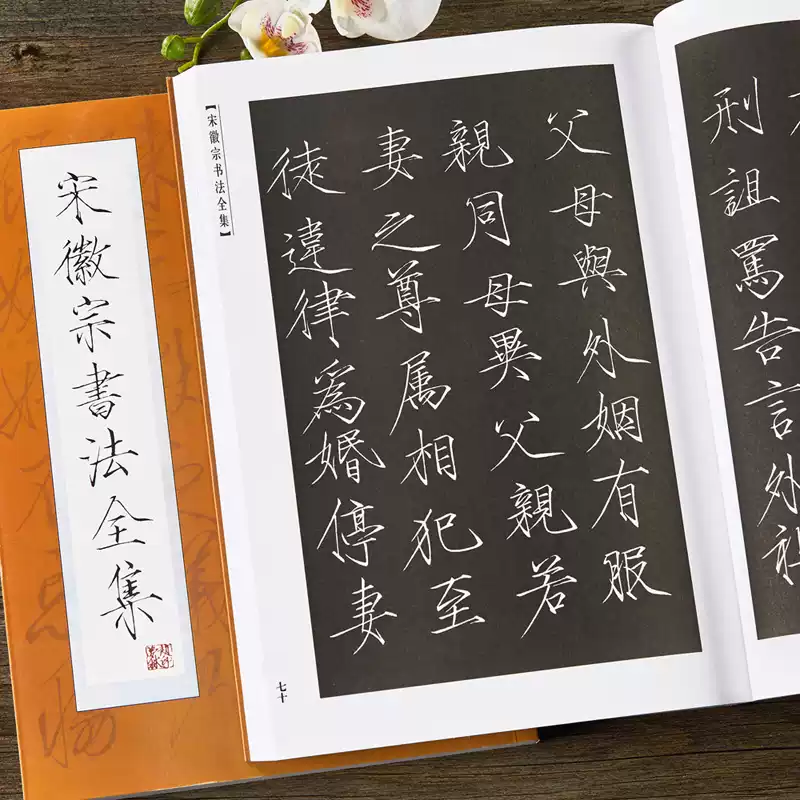 宋徽宗書法全集
【宋徽宗书法全集】
父母與外姻有服
親同母異父親若
妻之尊属相犯至
徒違律爲婚停妻
七十
刑詛罵告言外祖